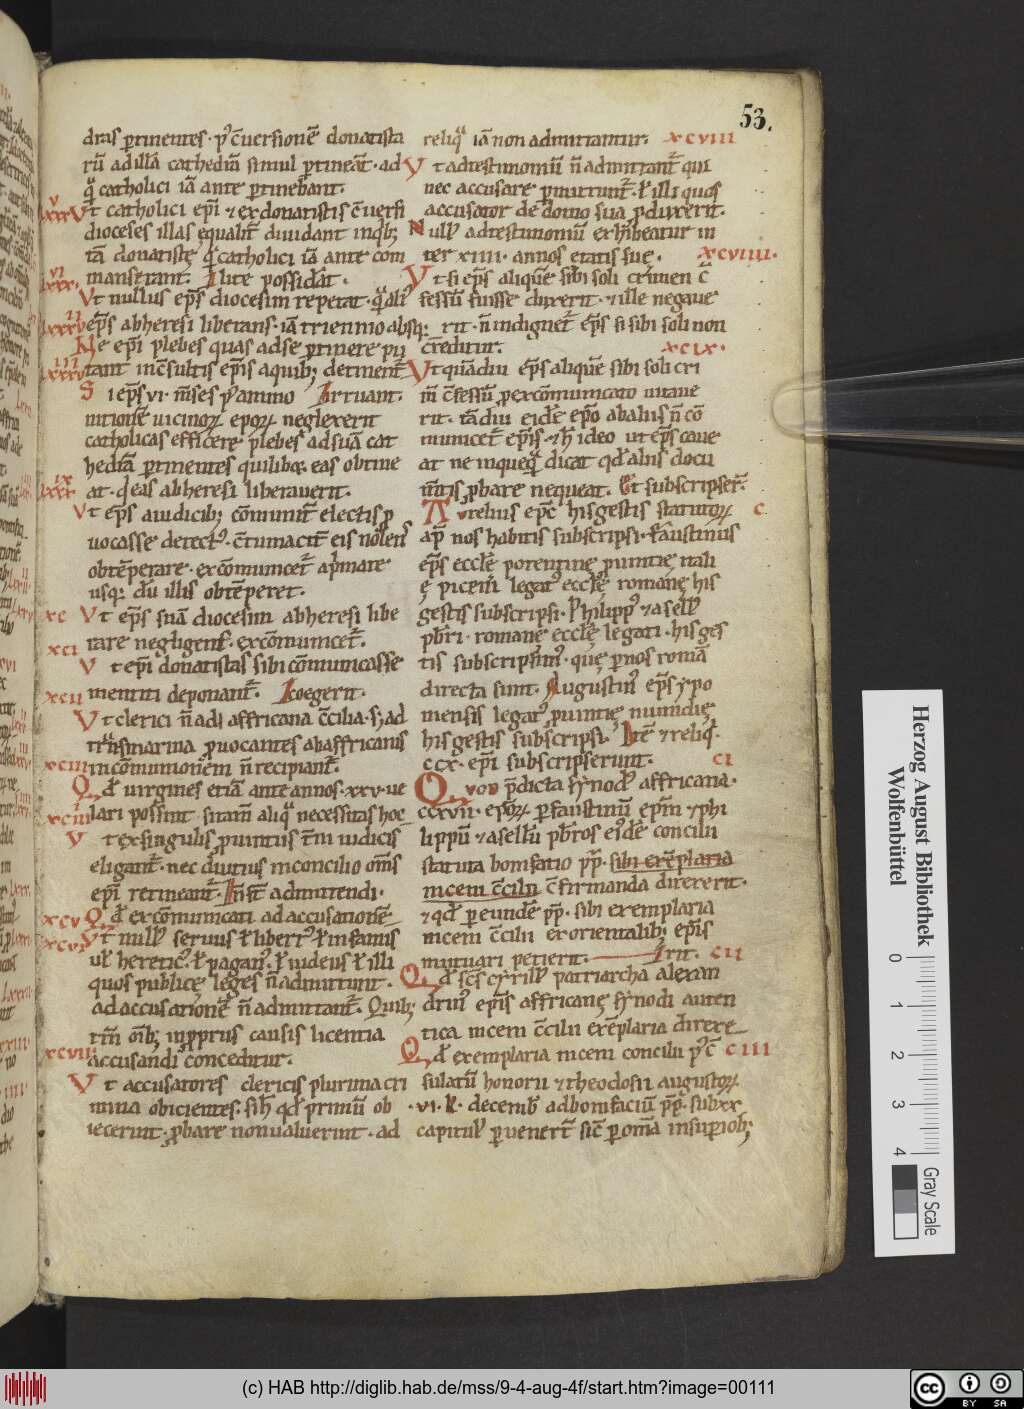 53.
dras ptinentes · p' c̄uersionē donatista
rū ad illā cathedrā simul ptineāt · ad
q̄ catholici iā ante ptinebant.
lxxxv Vt catholici ep̄i ⁊ ex donatistis c̄uersi
dioceses illas ęqualit̄ diuidant in qb;
iā donatistę q̄ catholici iā ante com
lxxxvi manserant. I lite possidāt.
Vt nullus ep̄s diocesim repetat · q̄ ali'
lxxxvii ep̄s ab heresi liberans · iā triennio absq:
Ne ep̄i plebes quas ad se ptinere pu
lxxxviii tant inc̄sultis ep̄is aquib; detinent̄
Si ep̄s vi · m̄ses p' ammo Irruant.
nitionē uicinoꝝ epoꝝ neglexerit
catholicas efficere · plebes ad suā cat
hedrā ptinentes quilibꝫ eas obtine
lxxxix at · q eas ab heresi liberauerit.
Vt ep̄s a iudicib; cōmunit̄ electis p
uocasse detect' · c̄tumacit̄ eis nolens
obtēperare · excōmunicet̄ a pmate
usq: dū illis obtēperet.
xc Vt ep̄s suā diocesim ab heresi libe
rare negligens · excōmunicet̄.
xci Vt ep̄i donatistas sibi cōmunicasse
xcii mentiti deponant̄. I coegerit.
Vt clerici n̄ ad affricana c̄cilia · s; ad
trāsmarina puocantes ab affricanis
xciii in cōmunionem n̄ recipiant̄.
Qd̄ uirgines etiā ante annos · xxv · ue
xciiii lari possint · si tam̄ aliq̄ necessitas hoc
Vt ex singulis puintiis t̄m iudicis
eligant̄ · nec diutius in concilio om̄s
ep̄i retineant̄. I n̄ st̄ admittendi.
xcv Qd̄ excōmunicati ad accusationē
xcvi Vt null' seruus ł libert' ł infamis
uł heretic' · ł pagan' · ł iudeus ł illi
quos publicę leges n̄ admittunt.
ad accusationē n̄ admittant̄. Quib;
tam̄ oīb; in pprius causis licentia
xcvii accusandi conceditur.
Vt accusatores clericis plurima cri
mina obicientes · si h̄ qd̄ primū ob
iecerint · pbare non ualuerint · ad
reliq̄ iā non admittantur. xcviii
Vt ad testimoniū n̄ admittant̄ qui
nec accusare pmittunt̄ · ł illi quos
accusator de domo sua pduxerit.
Null' ad testimoniū exhibeatur in
ter xiiii · annos etatis suę. xcviiii.
Vt si ep̄s aliquē sibi soli crimen c̄
fessū fuisse dixerit · ⁊ ille negaue
rit · n̄ indignet̄ ep̄s si sibi soli non
creditur. xcix.
Vt quādiu ep̄s aliquē sibi soli cri
m̄ c̄fessū p excōmunicato uitaue
rit · tādiu eidē ep̄o ab aliis n̄ cō
municet̄ ep̄is · ⁊ h̄ ideo ut ep̄s caue
at ne in quēq̄ dicat qd̄ aliis docu
m̄tis pbare nequeat. Et subscripser̄.
Aurelius ep̄c his gestis statutoꝝ c
ap̄ nos habitis subscripsi · Faustinus
ep̄s eccłę potentinę puintię itali
ę piceni legat' eccłę romanę his
gestis subscripsi · Philipp' ⁊ asell'
pbr̄i · romanę eccłę legati · his ges
tis subscripsim' · quę p nos romā
directa sunt. Augustin' ep̄s ypo
niensis legat' puintię numidię
his gestis subscripsi. Itē ⁊ reliq.
ccx · ep̄i subscripserunt. ci
Quod p̄dicta synod' affricana ·
ccxvii · ep̄oꝝ p faustinū ep̄m ⁊ phi
lippū ⁊ asellū pbr̄os eisdē concilii
statuta bonifatio p̄p · sibi exēplaria
niceni c̄cilii c̄firmanda direxerit.
⁊ qd̄ p eundē p̄p · sibi exemplaria
niceni c̄cilii ex orientalib; ep̄is
mutuari petierit. Irit. cii
Qd̄ sc̄s cyrill' patriarcha alexan
drin' ep̄is affricanę synodi auten
tica niceni c̄cilii exēplaria direxe
Qd̄ exemplaria niceni concilii p' c̄ ciii
sulatū honorii ⁊ theodosii augustoꝝ
· vi · k̄ · decemb̄ ad bonifaciū p̄p · sub xx
capitul' puenert̄ sic̄ p oīna in supiob;
Herzog August Bibliothek
Wolfenbüttel
0 1 2 3 4
Gray Scale
(c) HAB http://diglib.hab.de/mss/9-4-aug-4f/start.htm?image=00111
cc BY SA